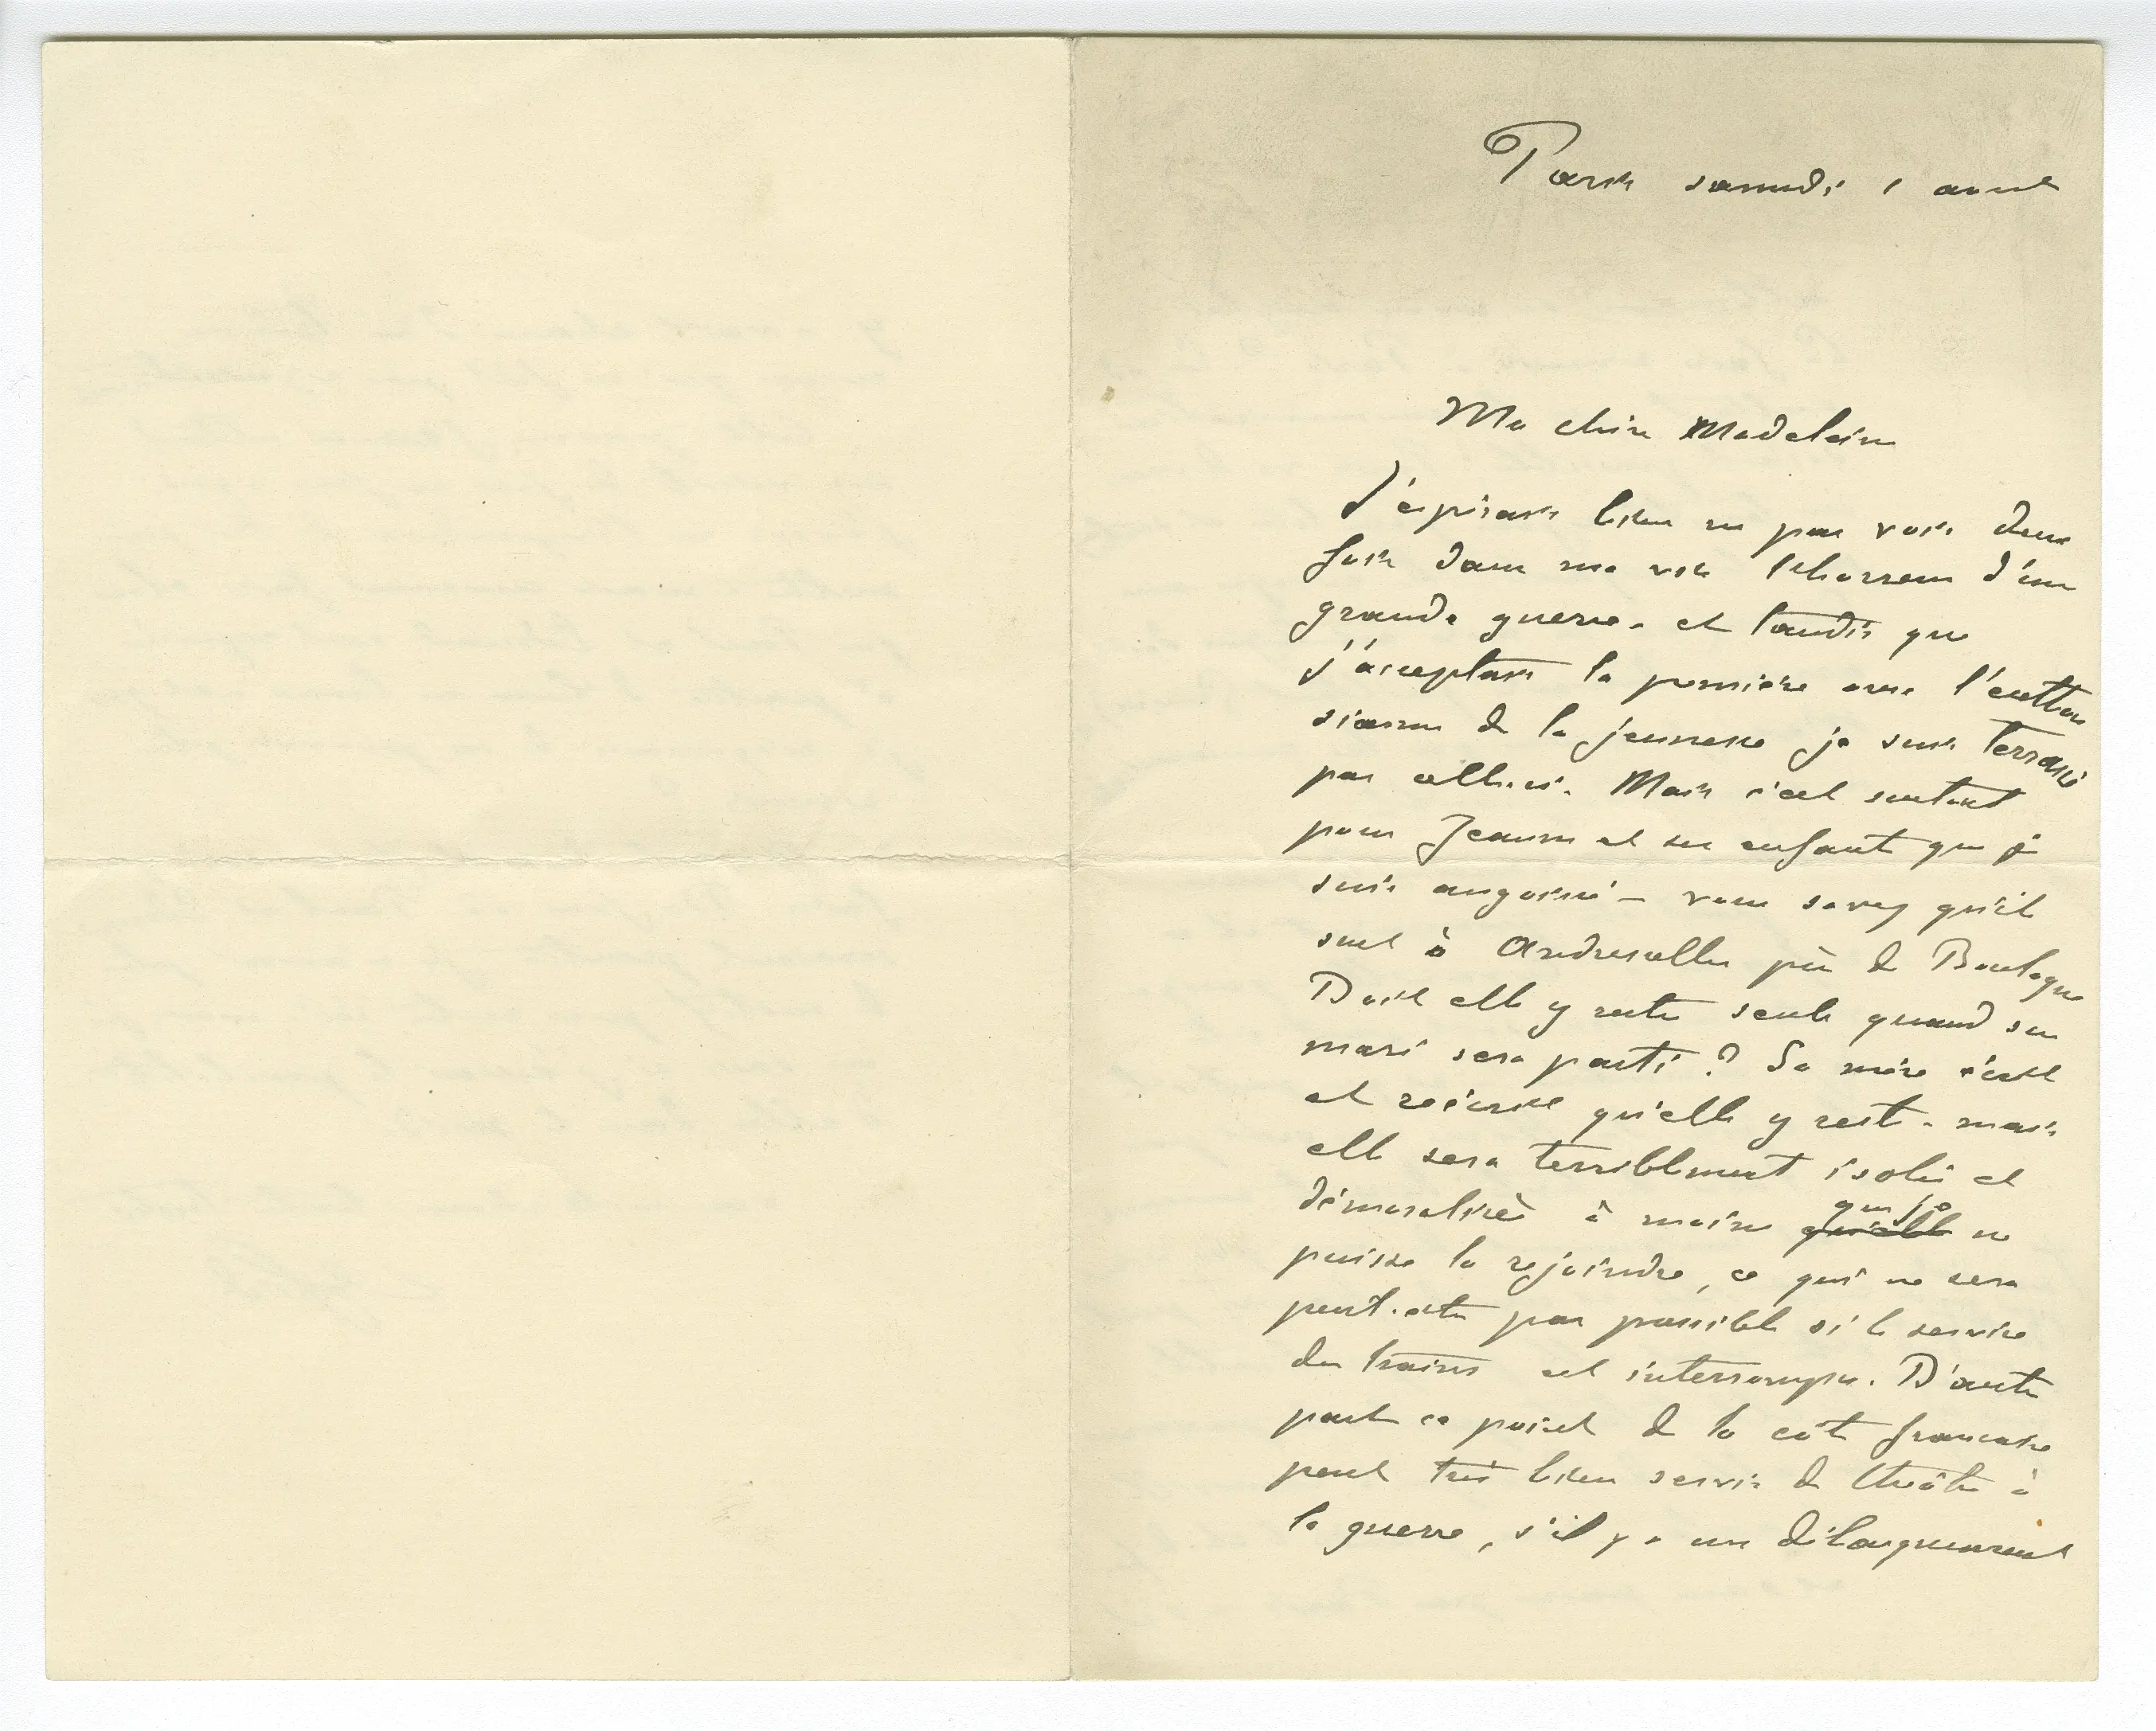 Paris samedi 1 aout
Ma chère Madeleine
J'espérais bien ne pas voir deux
fois dans ma vie l'horreur d'une
grande guerre - et tandis que
j'acceptais la première avec l'enthou
siasme de la jeunesse je suis terrassé
par celle-ci. Mais c'est surtout
pour Jeanne et ses enfants que je
suis angoissé - vous savez qu'ils
sont à Andresselles près de Boulogne
Doit elle y rester seule quand son
mari sera parti ? Sa mère s'est
et qu'elle y reste - mais
elle sera terriblement isolée et
démoralisée à moins qu'elle que je ne
puisse la rejoindre, ce qui ne sera
peut-etre pas possible si le service
des trains est interrompu. D'autre
part ce point de la côte française
peut très bien servir de théâtre à
la guerre, s'il y a un débarquement